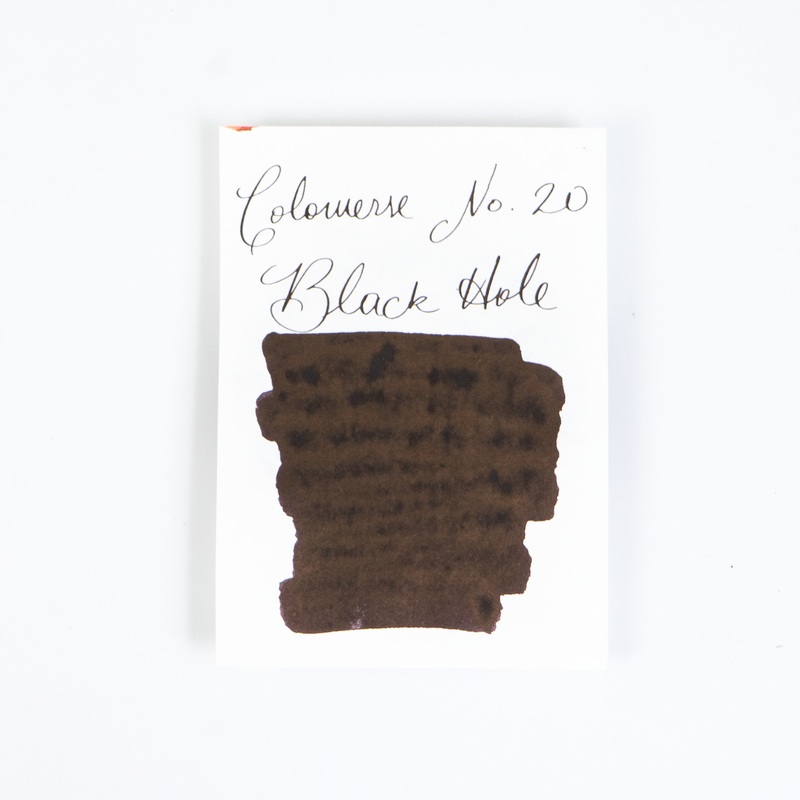 Colorverse No. 20
Black Hole